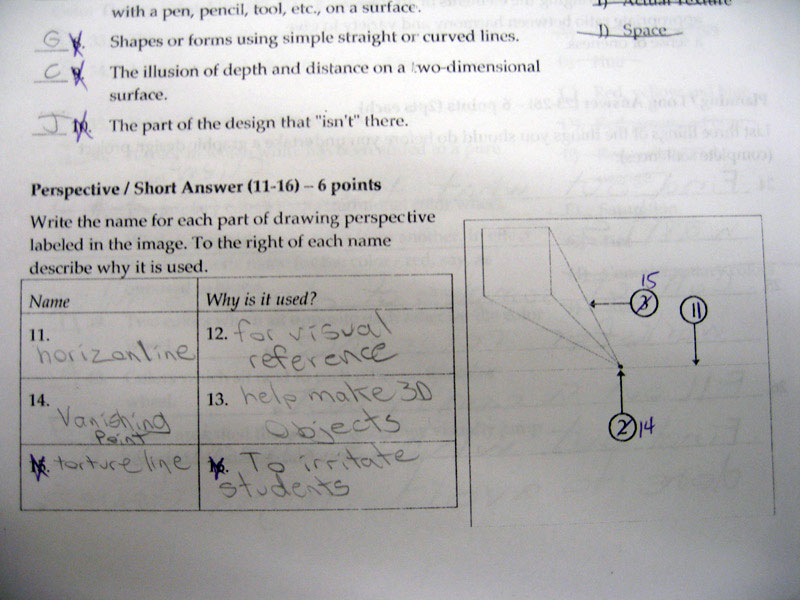 with a pen, pencil, tool, etc., on a surface.
G Shapes or forms using simple straight or curved lines.
J) Space
C The illusion of depth and distance on a two-dimensional
surface.
J 10. The part of the design that "isn't" there.
Perspective / Short Answer (11-16) – 6 points
Write the name for each part of drawing perspective
labeled in the image. To the right of each name
describe why it is used.
Name
Why is it used?
11.
horizonline
12. for visual
reference
14.
Vanishing
Point
13. help make 3D
Objects
15. torture line
16. To irritate
students
15
3
11
2 14